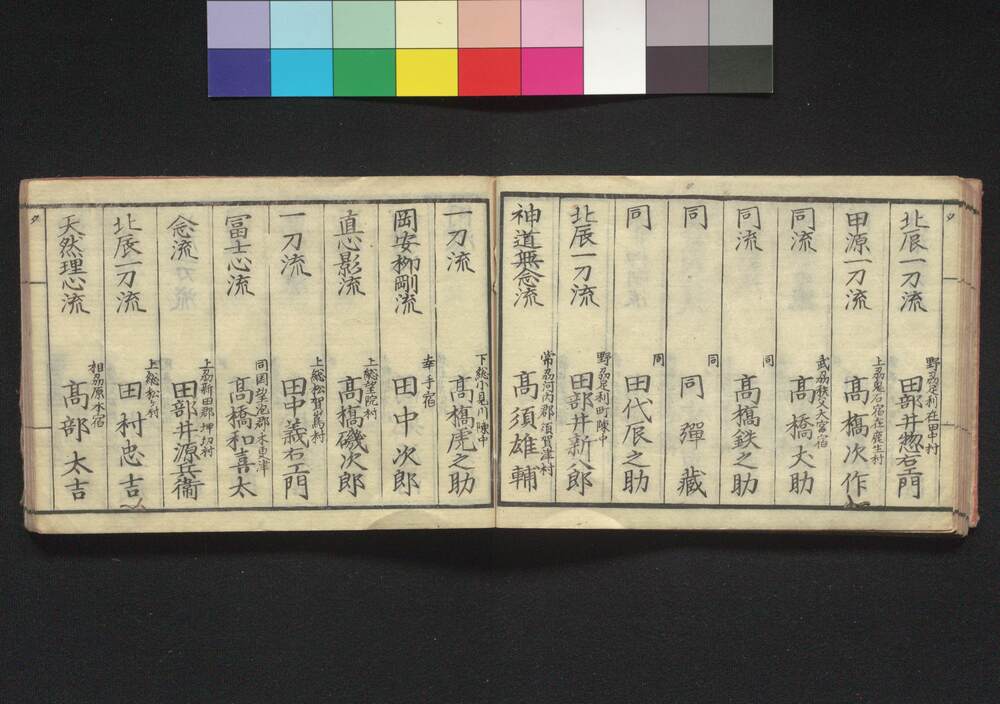 北辰一刀流
野刕足利在田中村
田部井惣右エ門
甲源一刀流
上刕鬼石宿在産生村
髙橋次作
同流
武刕秩父大宮宿
髙橋大助
同流
同
髙橋鉄之助
同
同
同彈藏
同
同
田代辰之助
北辰一刀流
野刕足利町陳中
田部井新八郎
神道無念流
常刕河内郡須賀津村
髙須雄輔
一刀流
下総小見川陳中
髙橋虎之助
岡安柳剛流
幸手宿
田中次郎
直心影流
上総望院村
髙橋磯次郎
一刀流
上総松賀嶌村
田中義右エ門
冨士心流
同国望沲郡木更津
髙橋和喜太
念流
上刕新田郡押切村
田部井源兵衛
北辰一刀流
上総松ヶ村
田村忠吉
天然理心流
相刕原木宿
髙部太吉